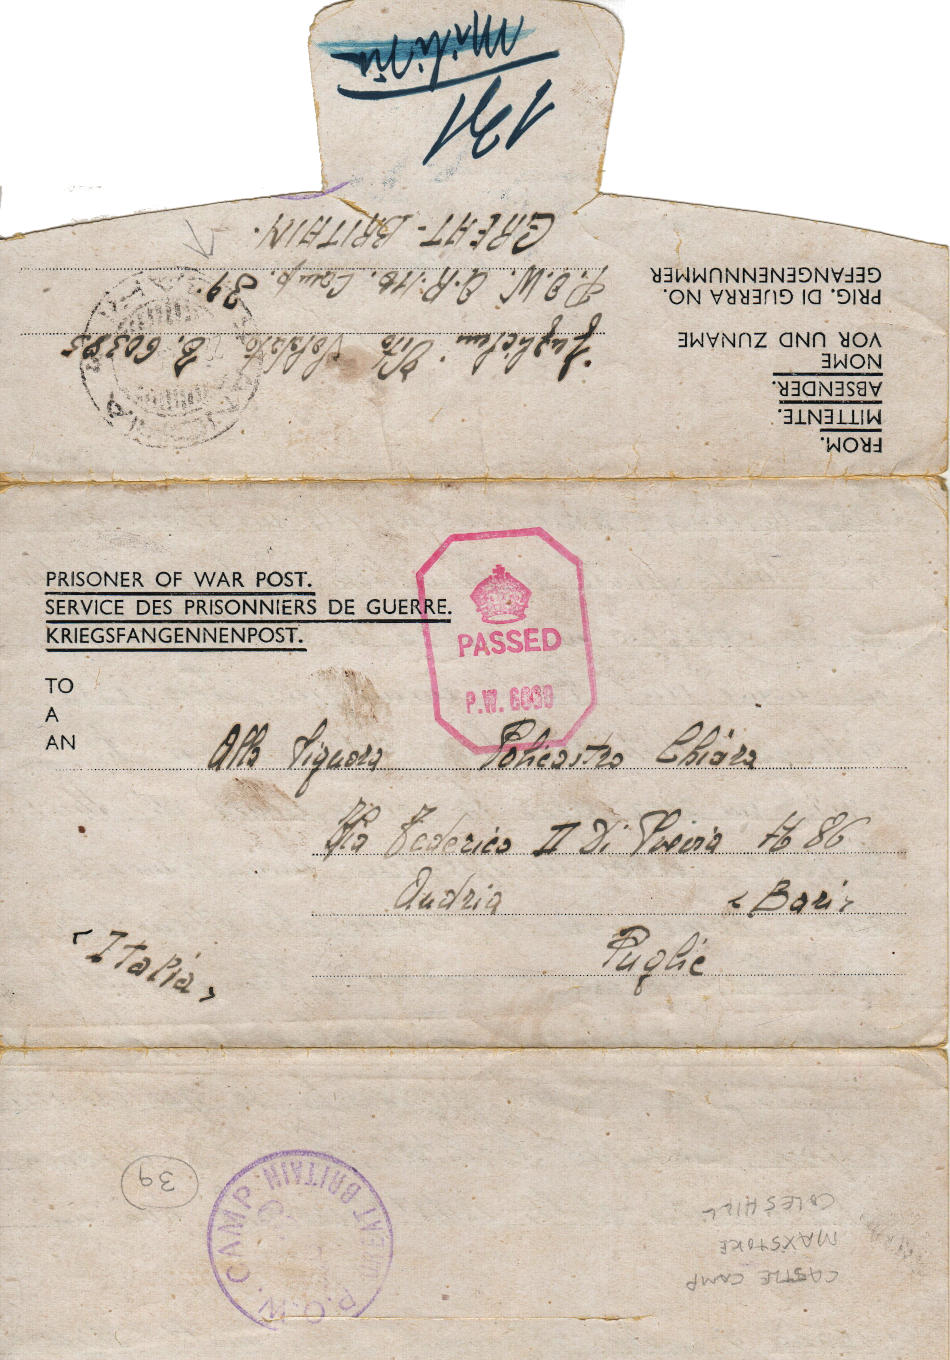 191
GREAT-BRITAIN.
P.O.W. Camp. 39.
Vito Soldato B. 60385
PRIG. DI GUERRA NO.
GEFANGENENNUMMER
NOME
VOR UND ZUNAME
FROM.
MITTENTE.
ABSENDER.
PRISONER OF WAR POST.
SERVICE DES PRISONNIERS DE GUERRE.
KRIEGSFANGENNENPOST.
PASSED
P.W.
TO
A
AN
Alla Signora Policastro Chiara
Via Federico II Di Svevia N 86
Andria (Bari)
Puglie
(Italia)
39
P.O.W. CAMP. BRITAIN.
CASTLE CAMP
MAXSTOKE
COLESHILL